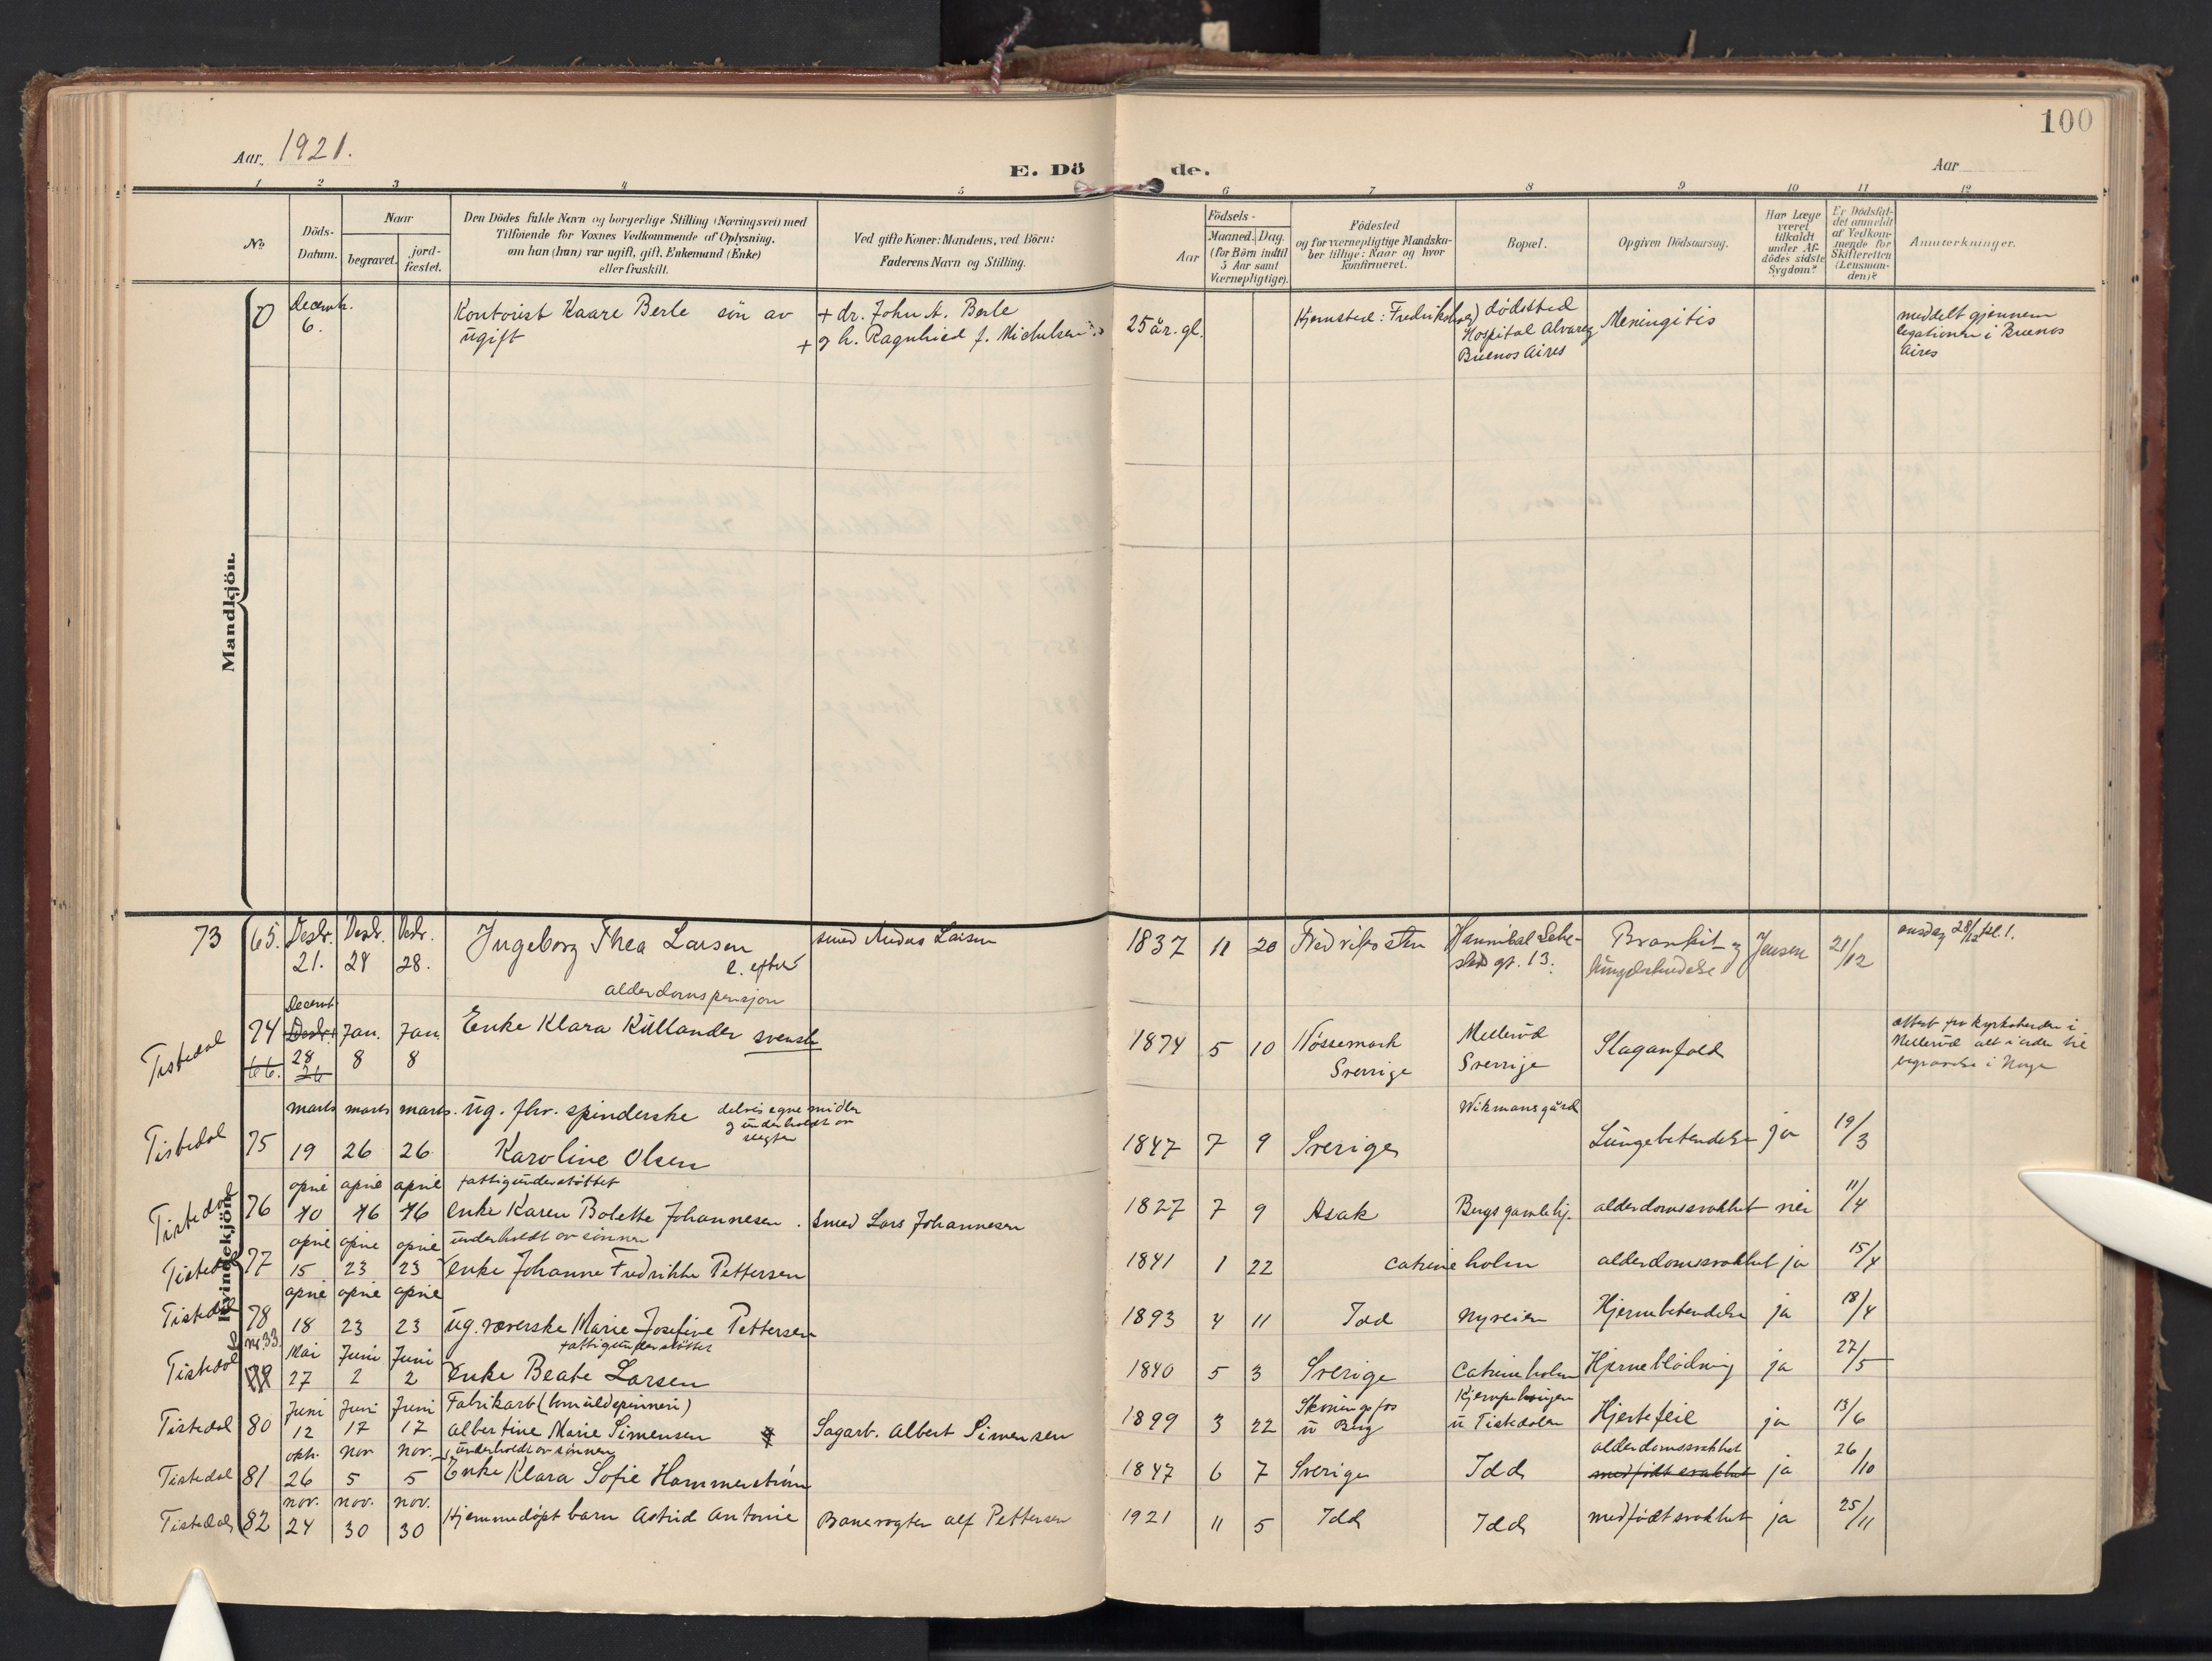 100
Aar. 1921.
E. Dö de.
Aar
1 2 3 4 5 6 7 8 9 10 11 12
No
Döds-Datum.
Naar
begravet.
jord-fæstet.
Den Dödes fulde Navn og borgerlige Stilling (Næringsvei) med
Tilföiende for Voxnes Vedkommende af Oplysning,
om han (hun) var ugift, gift, Enkemand (Enke)
eller fraskilt.
Ved gifte Koner: Mandens, ved Börn:
Faderens Navn og Stilling.
Födsels-
Aar
Maaned. Dag.
(for Börn indtil
5 Aar samt
Værnepligtige).
Födested
og for værnepligtige Mandska-
ber tillige: Naar og hvor
konfirmeret.
Bopæl.
Opgiven Dödsaarsag.
Har Læge
været
tilkaldt
under Af-
dödes sidste
Sygdom?
Er Dödsfal-
det anmeldt
af Vedkom-
mende for
Skifteretten
(Lensman-
den)?
Anmærkninger.
Mandkjön.
0 Decemb. 6. Kontorist Kaare Berle sön av + dr. John A. Berle 25 år. gl. Hjemsted: Fredrikshald) dödssted Meningitis meddelt gjennem
ugift + og h. Ragnhild f. Michelsen Hospital Alvarez legationen i Buenos
Buenos Aires Aires
Kvindekjön.
73 65. Desbr. Desbr. Desbr. Ingeborg Thea Larsen smed Larsen 1837 11 20 Fredriksten Hannibal Sehe- Jensen 21/12 onsdag 28/12 kl. 1.
21. 28. e. efter steds gt. 13.
alderdomspensjon
Decemb.
Tistedal 74 66. Desbr. Jan. Jan. Enke Klara Küllander svensk 1874 5 10 Nössemark Melleröd Slaganfald
28 26 8 8 Sverrige Sverrige begravelse i Norge
marts marts marts. ug. fhv. spinderske delvis egne midler Wikmansgård
og underholdt av
slegten
Tistedal 75 19 26 26 Karoline Olsen 1847 7 9 Sverige Lungebetendelse ja 19/3
april april april fattigunderstöttet
Tistedal 76 10 16 16 enke Karen Bolette Johannesen. Smed Lars Johannesen 1827 7 9 Asak Bergs gamlehj. alderdomssvakhet nei 11/4
april april april underholdt av sönnen
Tistedal 77 15 23 23 enke Johanne Fredrikke Pettersen 1841 1 22 Catrineholm alderdomssvakhet ja 15/4
april april april
Tistedal 78 18 23 23 ug. væverske Marie Josefine Pettersen 1893 4 11 Idd Nyveien Hjernebetendelse ja 18/4
nr. 33 Mai Juni Juni fattigunderstöttet
Tistedal 79 27 2 2 Enke Beate Larsen 1840 5 3 Sverige Catrineholm Hjerneblödning ja 27/5
Juni Juni Juni Fabrikarb (bomuldspinneri)
Tistedal 80 12 17 17 Albertine Marie Simensen Sagarb. Albert Simensen 1899 3 22 Skoningsfos u Berg u Tistedalen Hjertefeil ja 13/6
okt. nov nov. underholdt av sönnen alderdomssvakhet
Tistedal 81 26 5 5 Enke Klara Sofie Hammerström 1847 6 7 Sverige Idd medfödt svakhet ja 26/10
nov. nov. nov.
Tistedal 82 24 30 30 Hjemmedöpt barn Astrid Antonie Banevogter Alf Pettersen 1921 11 5 Idd Idd medfödt svakhet ja 25/11